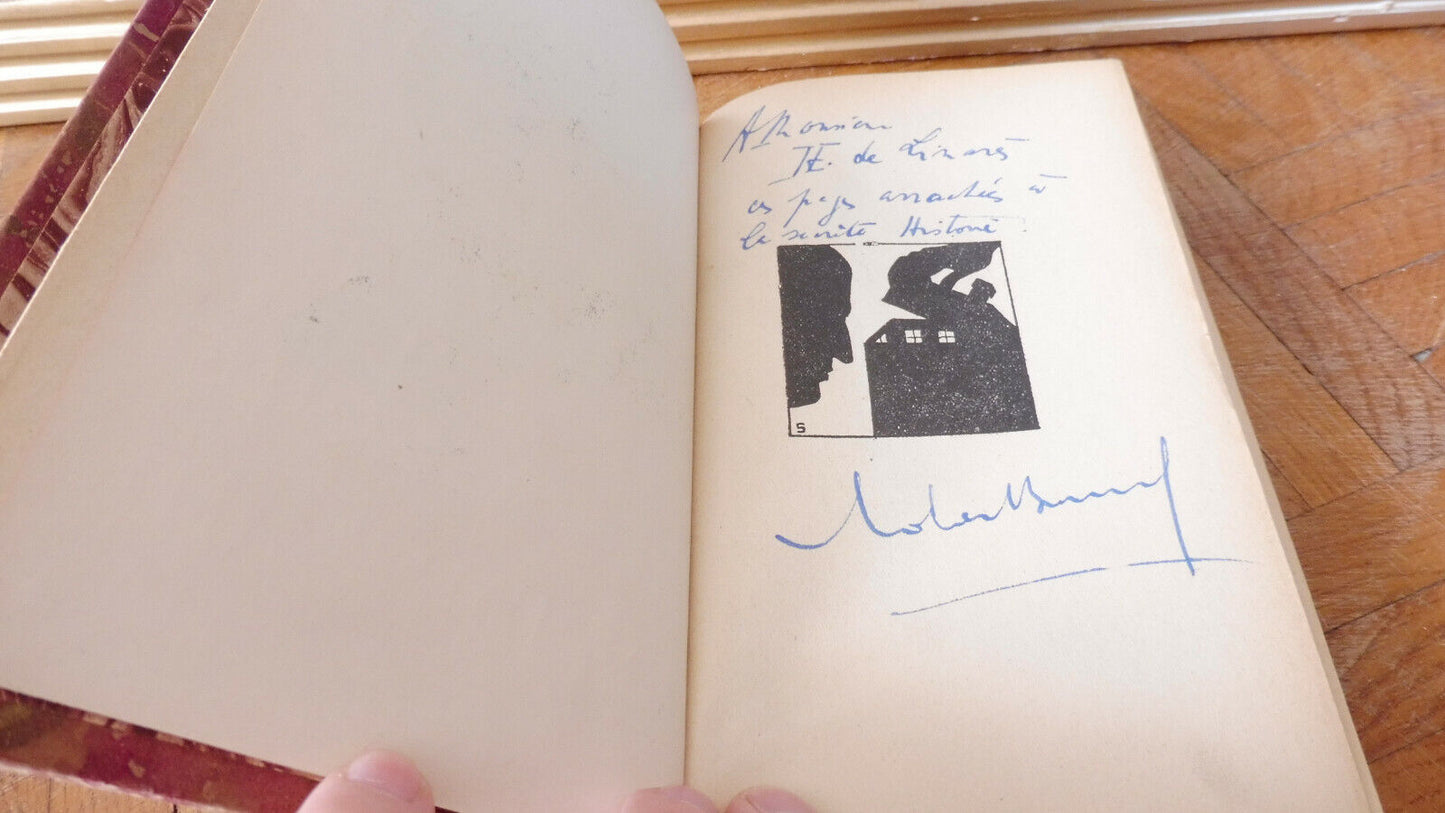 A Monsieur
JE. de Linarès
ces pages arrachées à
la secrète Histoire.
5
Robert